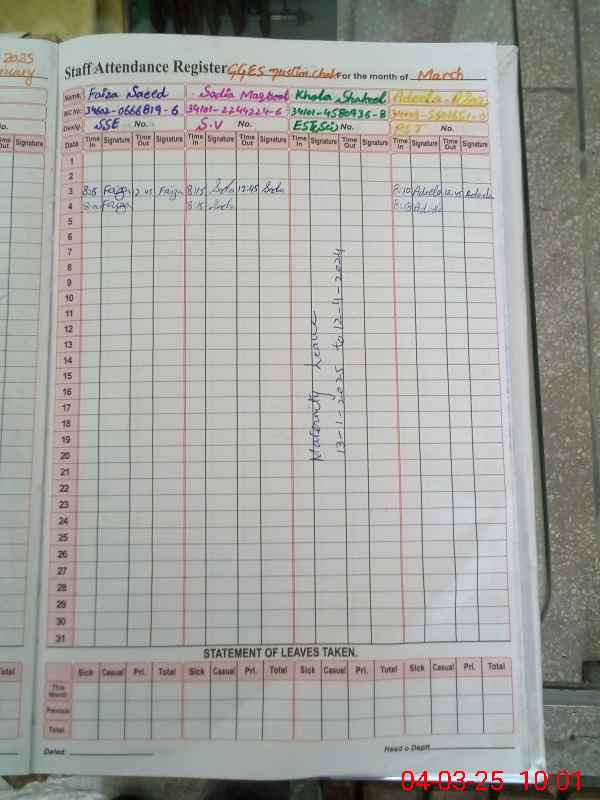 2025
Staff Attendance Register GGES Muslim Chak For the month of March
Name: Faiza Saeed Sadia Maqbool Khola Shakeel Adeela Riaz
NIC No: 34602-0666819-6 34101-2244224-6 34101-4580936-8
Desig: SSE No. S.V No. ESE(Sci) No. PST No.
Date Time In Signature Time Out Signature Time In Signature Time Out Signature Time In Signature Time Out Signature Time In Signature Time Out Signature
1
2
3 8:15 Faiza 12:45 Faiza 8:15 Sadia 12:45 Sadia 8:10 Adeela 12:45 Adeela
4 Faiza 8:15 Sadia Adeela
5
6
7
8
9
10
11
12
13
14
15
16
17
18
19
20
21
22
23
24
25
26
27
28
29
30
31
Maternity Leave
13-1-2025 to 12-4-2024
STATEMENT OF LEAVES TAKEN.
Sick Casual Pri. Total Sick Casual Pri. Total Sick Casual Pri. Total Sick Casual Pri. Total
This Month
Previous
Total
Dated: Head o Deptt.
04-03-25 10:01